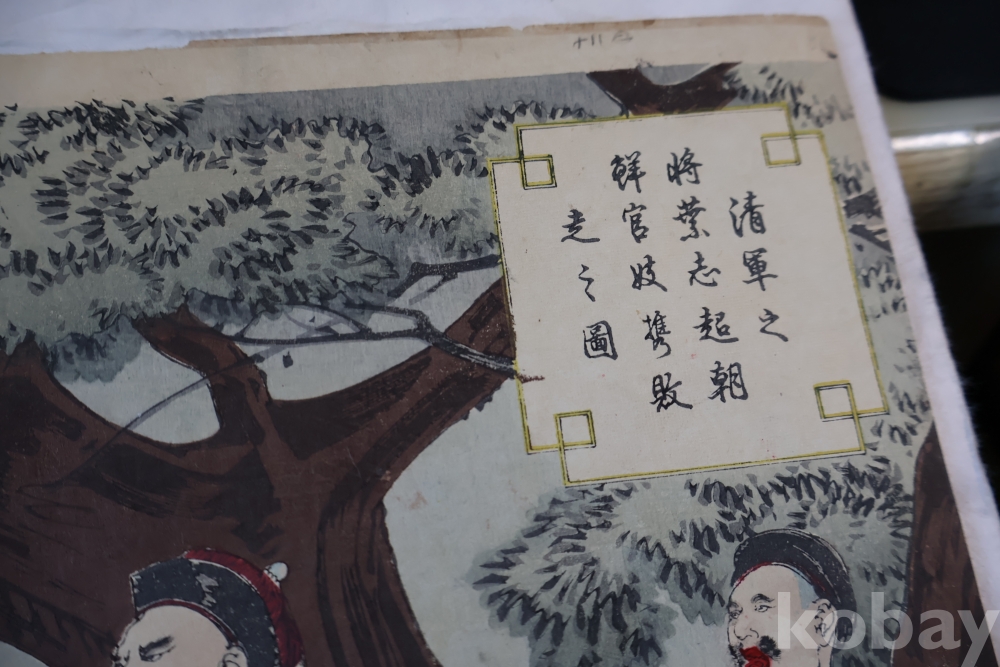 清軍之
將葉志超朝
鮮官妓携敗
走之圖
kobay